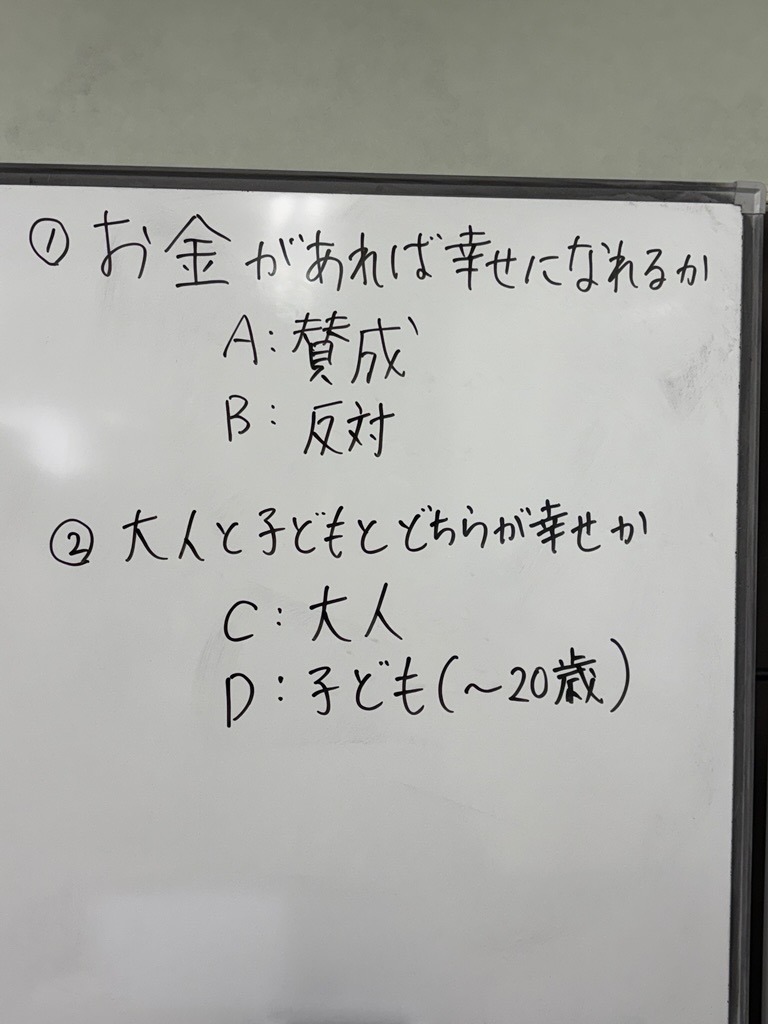 ① お金があれば幸せになれるか
A：賛成
B：反対
② 大人と子どもとどちらが幸せか
C：大人
D：子ども(～20歳)